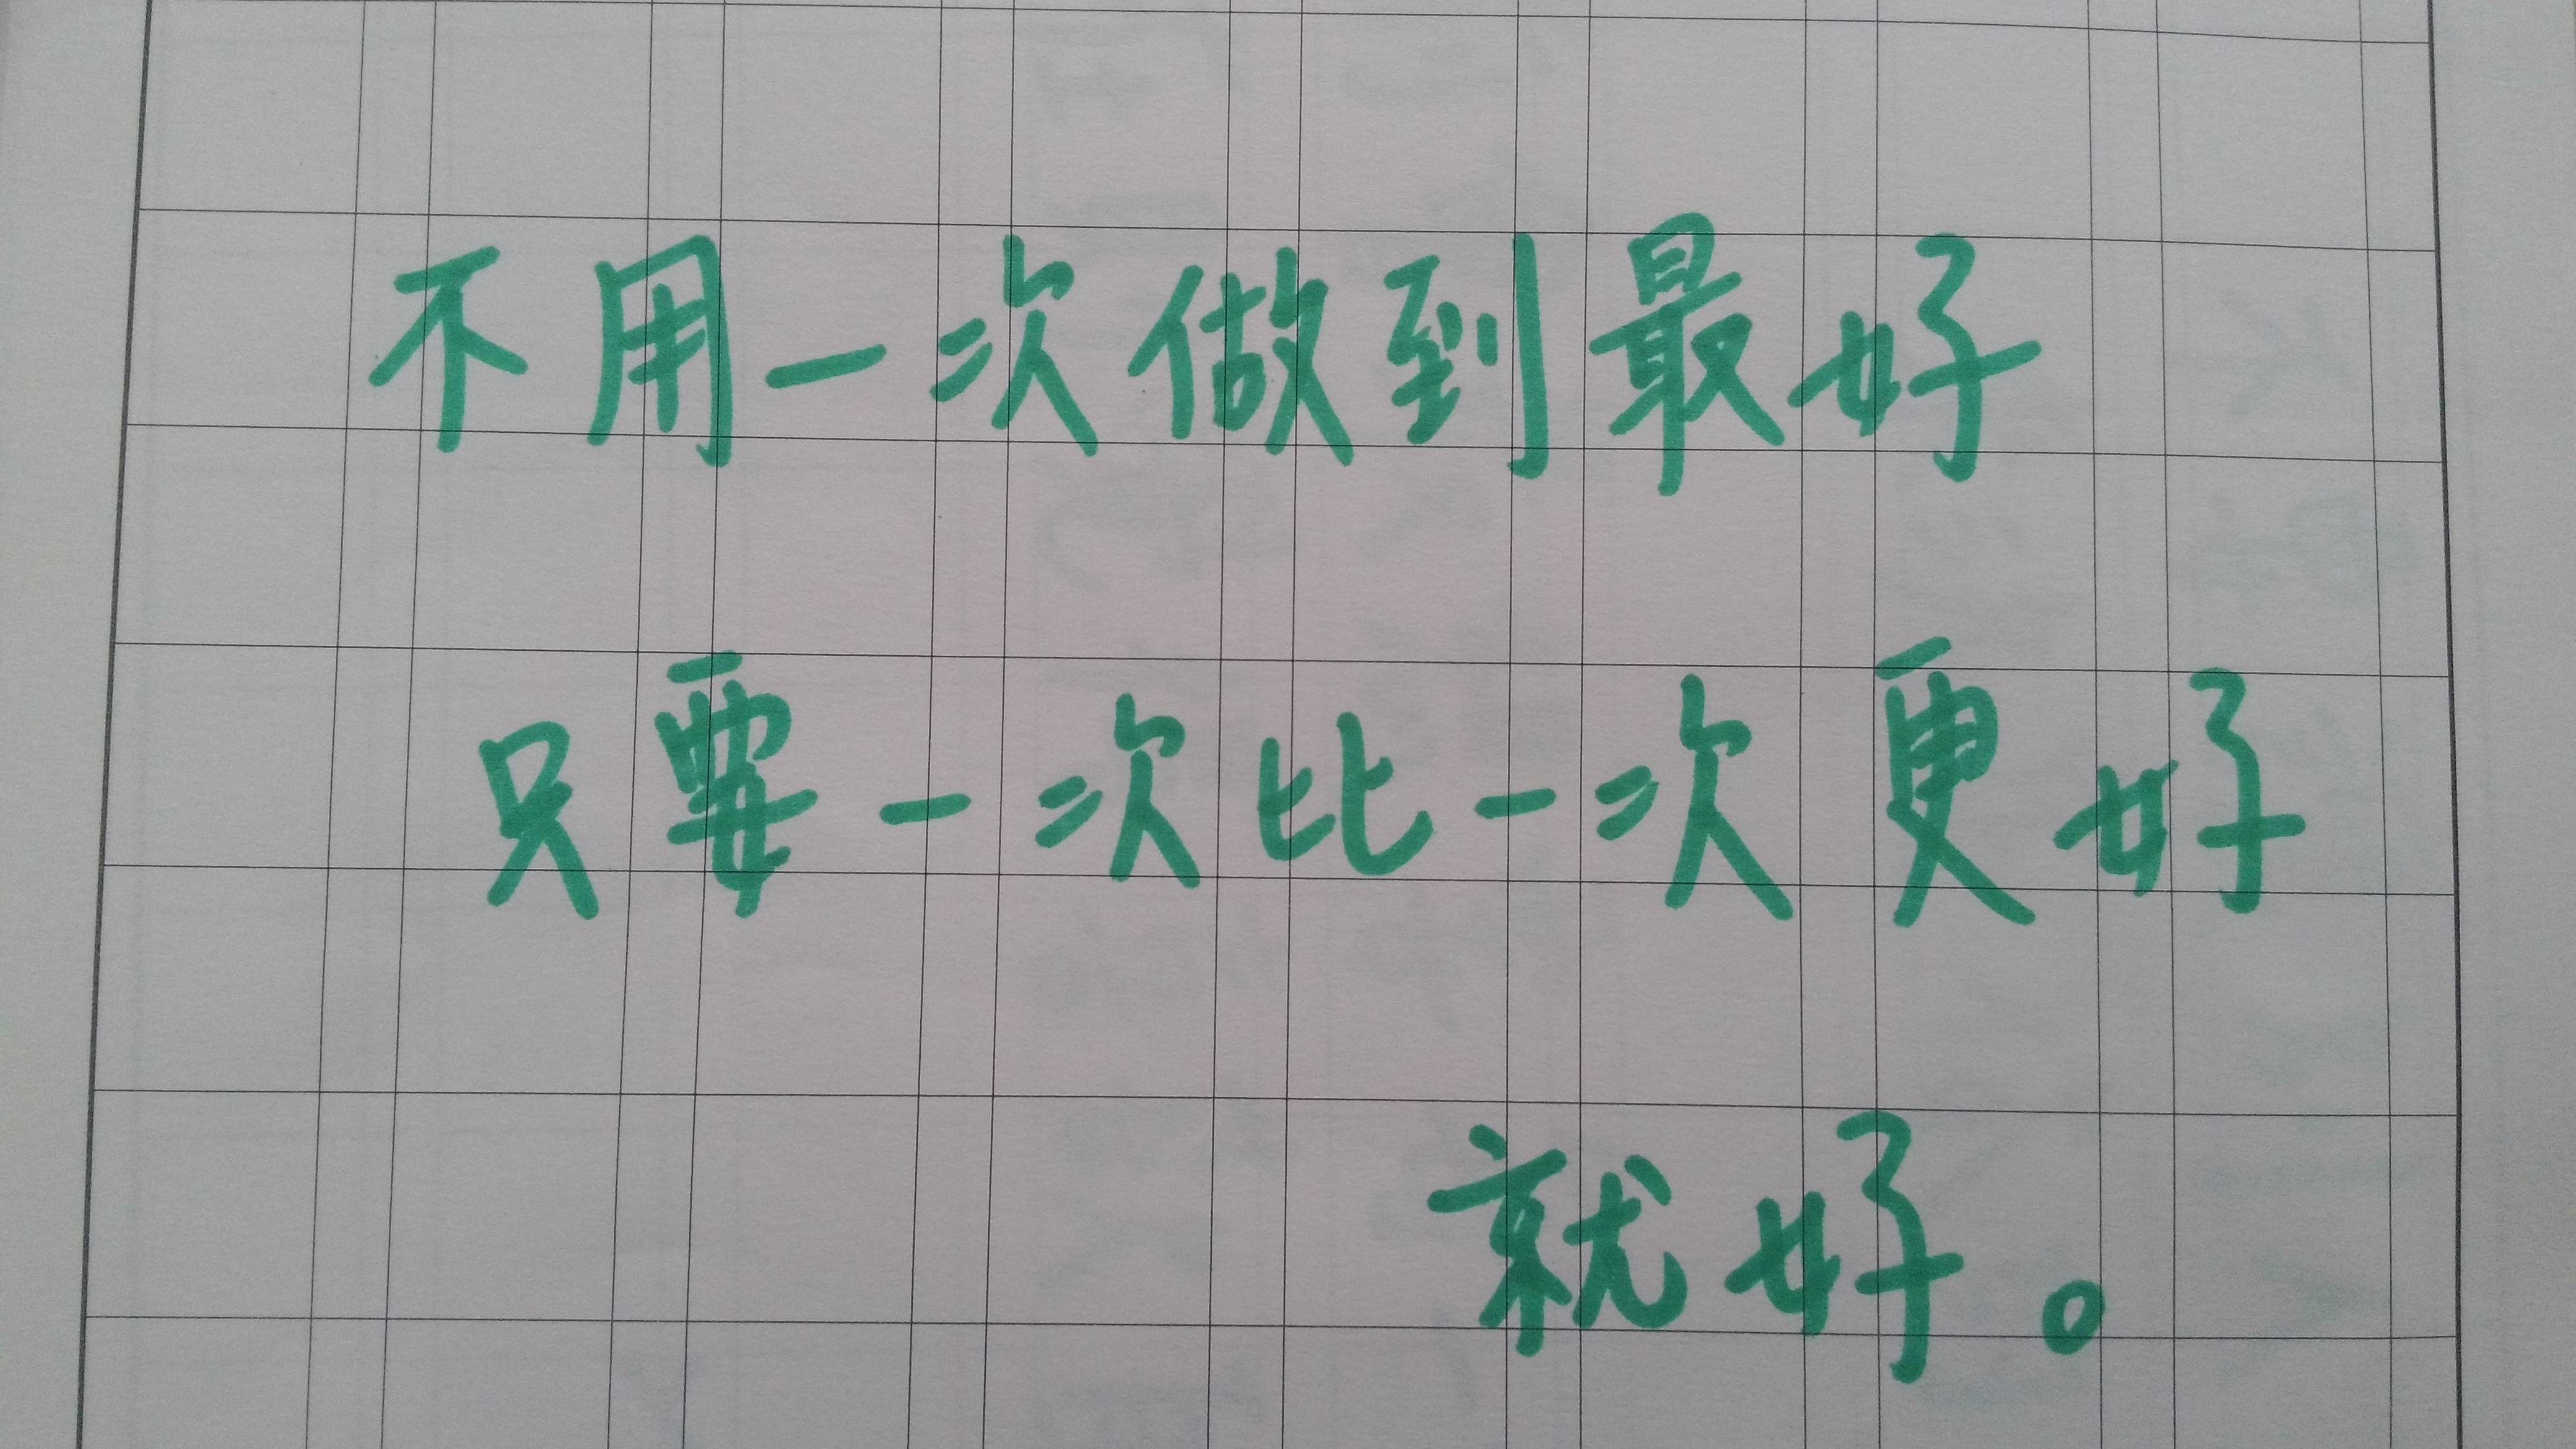 不用一次做到最好
只要一次比一次更好
就好。